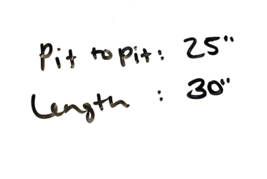 Pit to pit: 25"
Length : 30"